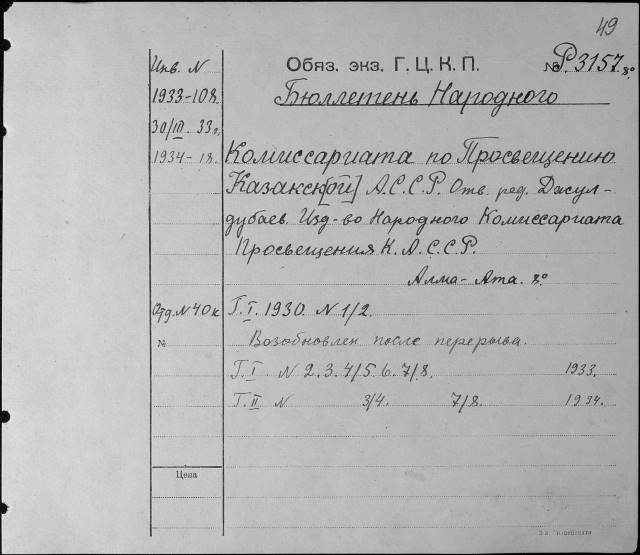 49
Инв. N
Обяз. экз. Г. Ц. К. П. № Р. 3157. 8°
1933-108.
Бюллетень Народного
30/III. 33 г.
1934-18.
Комиссариата по Просвещению
Казакск[ой] А.С.С.Р. Отв. ред. Джул-
дубаев. Изд-во Народного Комиссариата
Просвещения К.А.С.С.Р.
Алма-Ата. 8°.
Отд. N 40к
Г. I. 1930. N 1/2.
№
Возобновлен после перерыва.
Г. I. N 2. 3. 4/5. 6. 7/8. 1933.
Г. II N 3/4. 7/8. 1934.
Цена